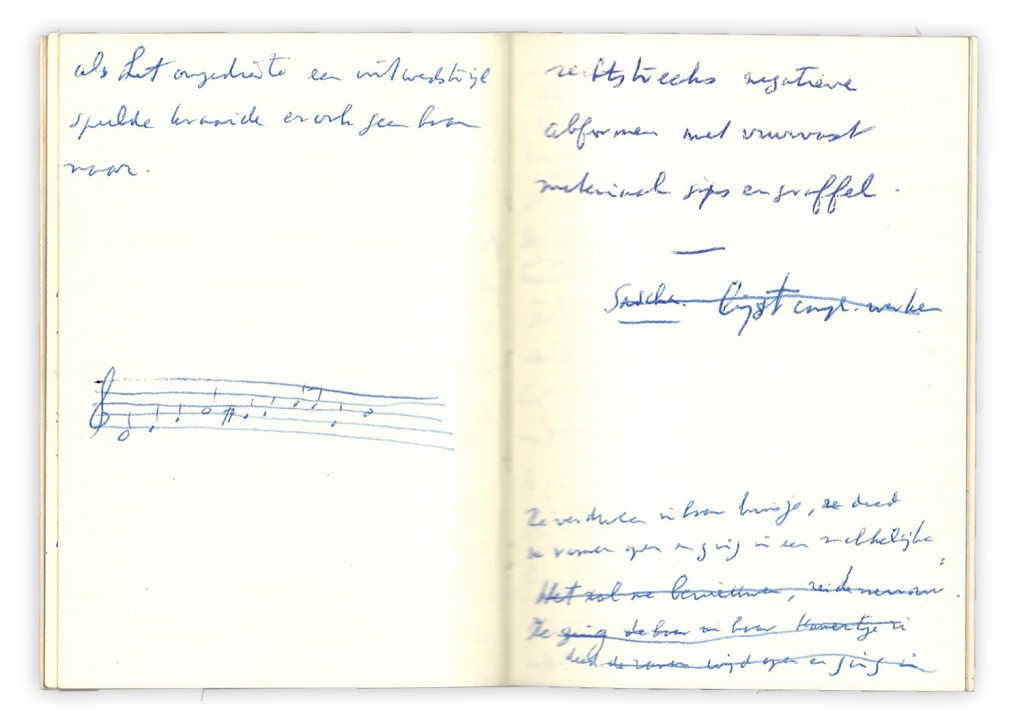 als het ongedierte een uitwedstrijd
speelde kraaide er ook geen haan
naar.
rechtstreeks negatieve
afformen met vuurvast
materiaal gips en graffel.
Sascha. Lijst compl. werken
Ze verdween in haar huisje, ze deed
de ramen open en ging in een makkelijke
Het zal me benieuwen, zeide mevrouw.
Ze ging in haar kamertje
deed de ramen wijd open en ging in